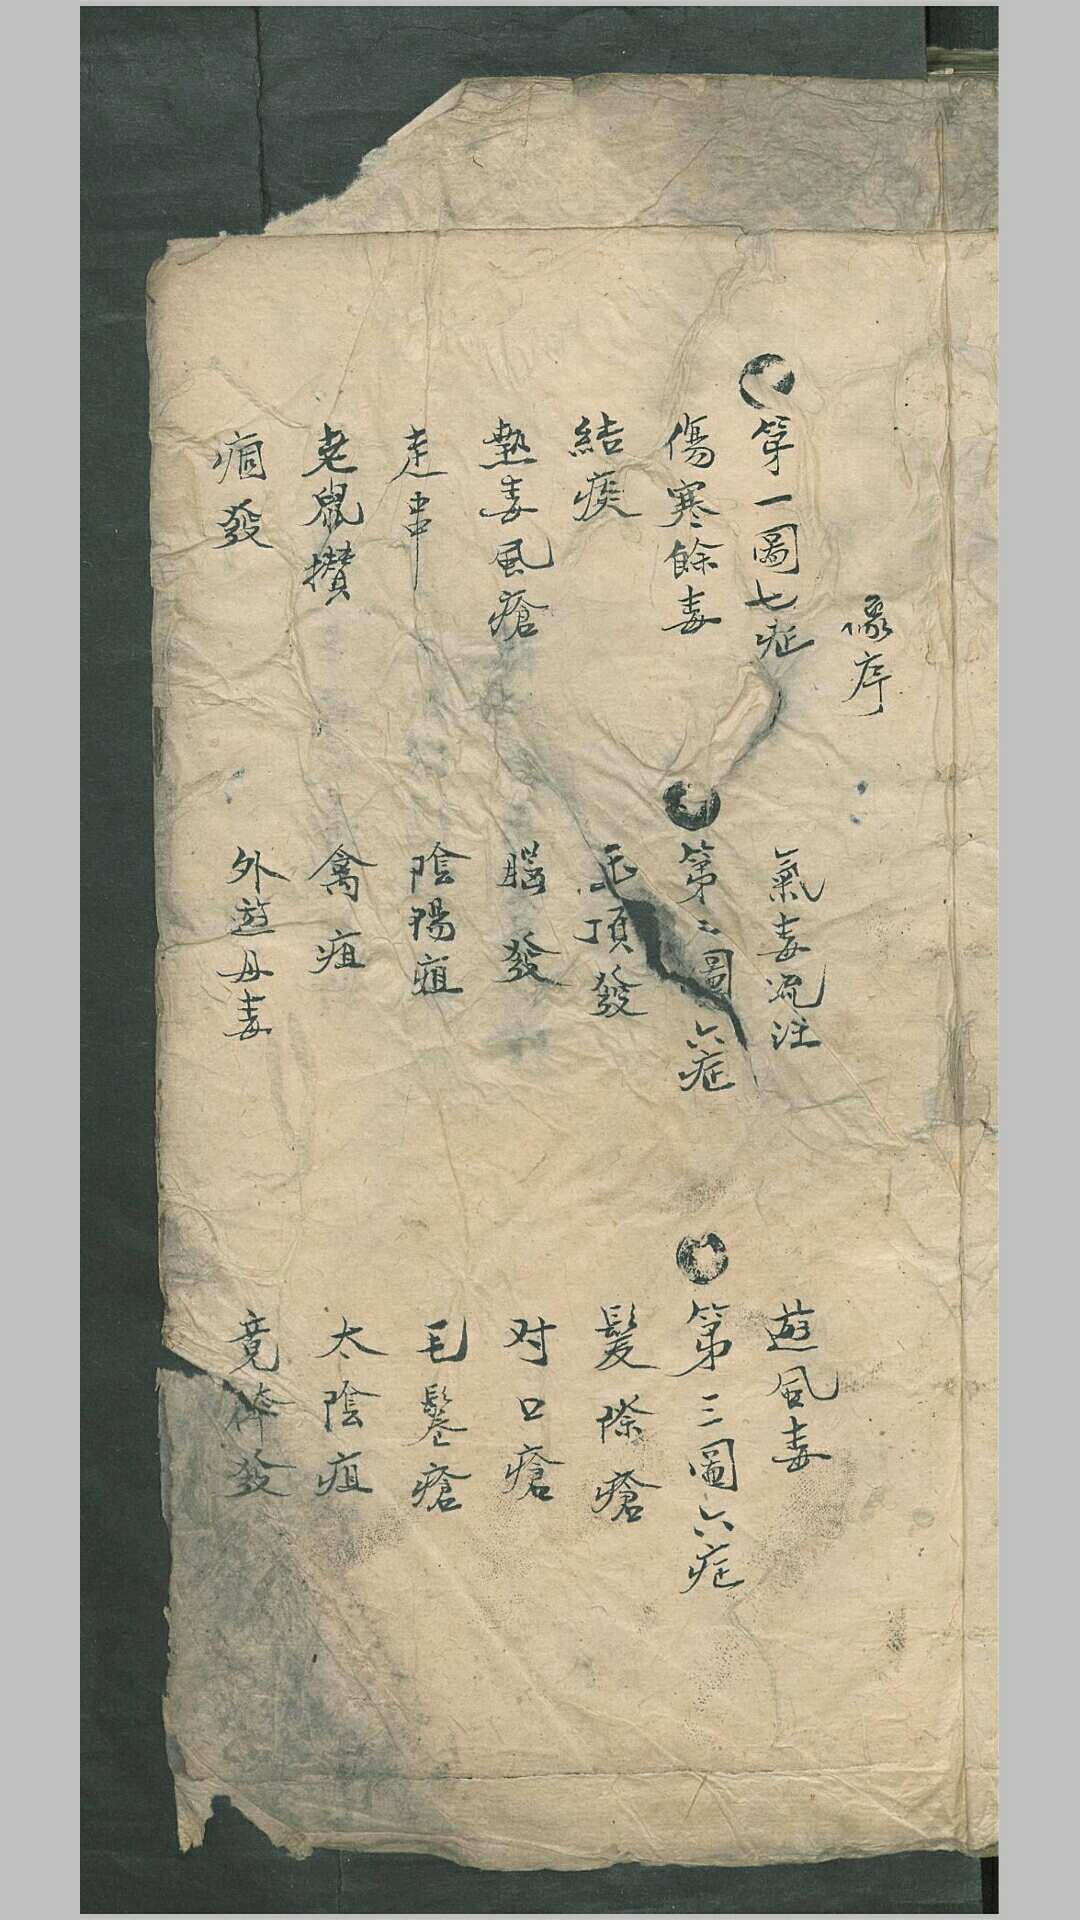 像序
第一圖七症
傷寒餘毒
結痰
熱毒風瘡
走串
老鼠攢
痼發
氣毒流注
第二圖六症
玉頂發
腦發
陰陽疽
禽疽
外遊丹毒
遊風毒
第三圖六症
髮際瘡
对口瘡
毛鬈瘡
太陰疽
竟体發